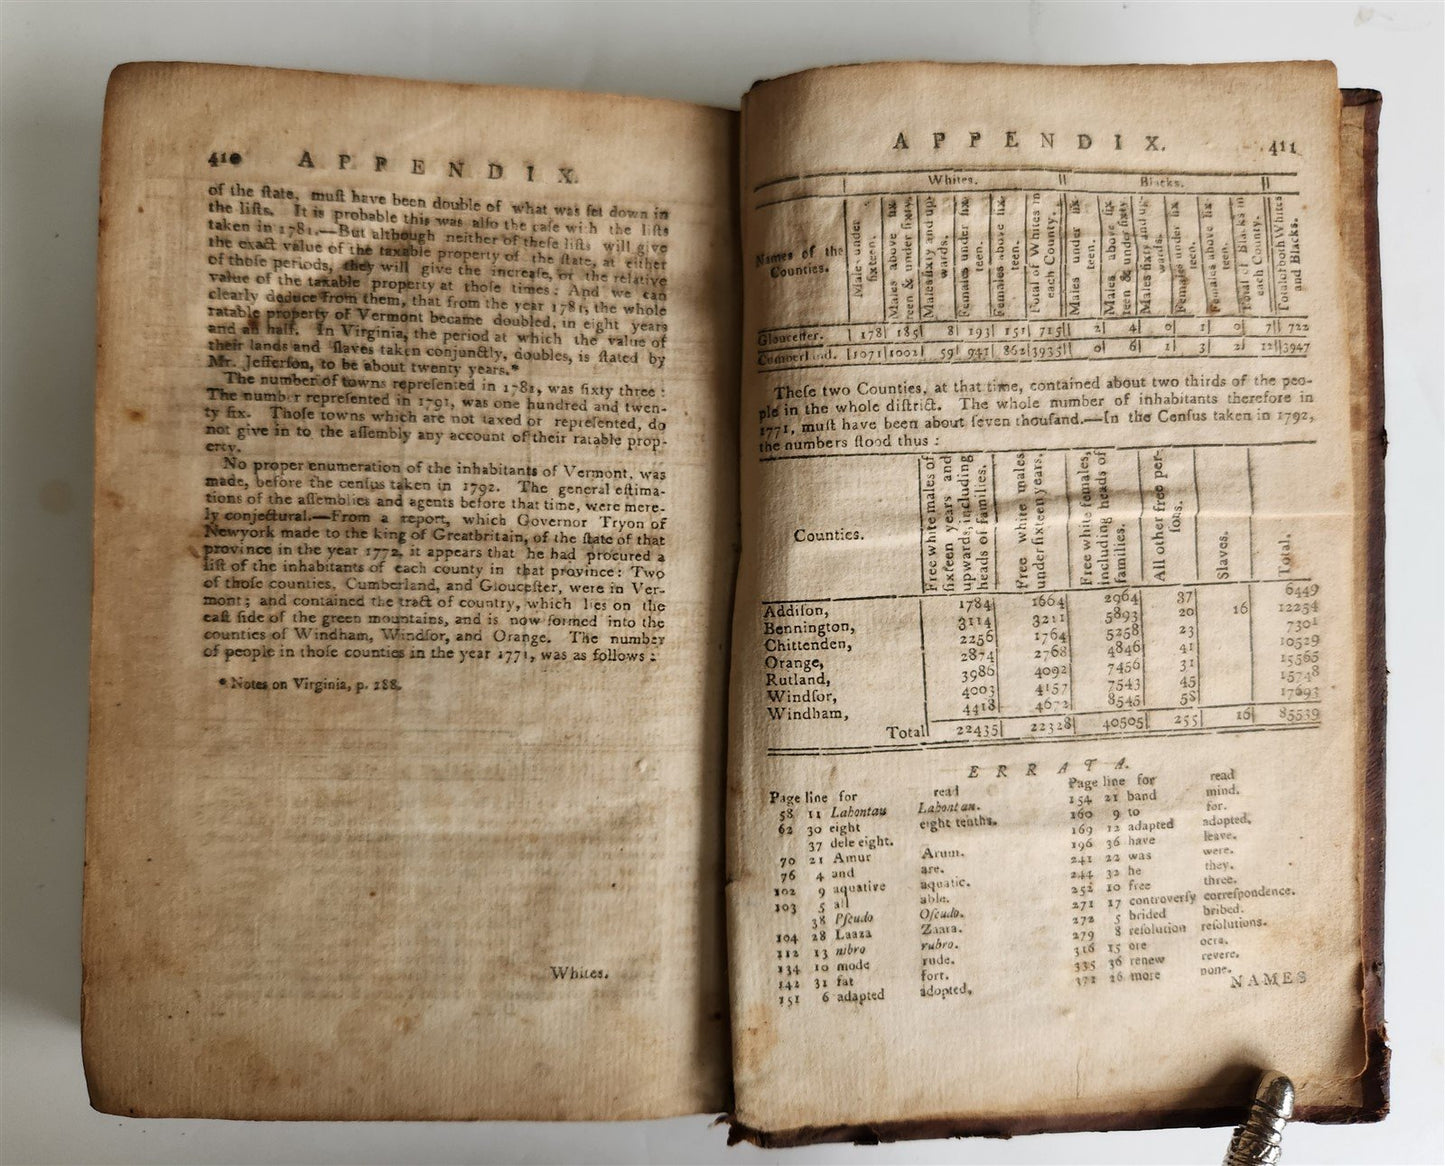 410 APPENDIX.
of the ſtate, muſt have been double of what was ſet down in
the liſts. It is probable this was alſo the caſe with the liſts
taken in 1781.—But although neither of theſe liſts will give
the exact value of the taxable property of the ſtate, at either
of thoſe periods, they will give the increaſe, or the relative
value of the taxable property at thoſe times: And we can
clearly deduce from them, that from the year 1781, the whole
ratable property of Vermont became doubled, in eight years
and an half. In Virginia, the period at which the value of
their lands and ſlaves taken conjunctly, doubles, is ſtated by
Mr. Jefferſon, to be about twenty years.*
The number of towns repreſented in 1781, was ſixty three:
The number repreſented in 1791, was one hundred and twen-
ty ſix. Thoſe towns which are not taxed or repreſented, do
not give in to the aſſembly any account of their ratable prop-
erty.
No proper enumeration of the inhabitants of Vermont, was
made, before the cenſus taken in 1792. The general eſtima-
tions of the aſſemblies and agents before that time, were mere-
ly conjectural.—From a report, which Governor Tryon of
Newyork made to the king of Greatbritain, of the ſtate of that
province in the year 1772, it appears that he had procured a
liſt of the inhabitants of each county in that province: Two
of thoſe counties, Cumberland, and Glouceſter, were in Ver-
mont; and contained the tract of country, which lies on the
eaſt ſide of the green mountains, and is now formed into the
counties of Windham, Windſor, and Orange. The number
of people in thoſe counties in the year 1771, was as follows:
* Notes on Virginia, p. 288.
Whites.
APPENDIX. 411
Whites. Blacks.
Names of the
Counties.
Males under
ſixteen.
Males above ſix
teen & under ſixty.
Males ſixty and up
wards.
Females under ſix
teen.
Females above ſix
teen.
Total of Whites in
each County.
Males under ſix
teen.
Males above ſix
teen & under ſixty
Males ſixty and up-
wards.
Females under ſix
teen.
Females above ſix
teen.
Total of Blacks in
each County.
Total of both Whites
and Blacks.
Glouceſter. 178 185 8 193 151 715 2 4 0 1 0 7 722
Cumberland. 1071 1002 59 941 862 3935 0 6 1 3 2 12 3947
Theſe two Counties, at that time, contained about two thirds of the peo-
ple in the whole diſtrict. The whole number of inhabitants therefore in
1771, muſt have been about ſeven thouſand.—In the Cenſus taken in 1792,
the numbers ſtood thus:
Counties.
Free white males of
ſixteen years and
upwards, including
heads of families.
Free white males
under ſixteen years,
Free white females,
including heads of
families.
All other free per-
ſons.
Slaves.
Total.
Addiſon, 1784 1664 2964 37 6449
Bennington, 3114 3211 5893 20 16 12254
Chittenden, 2256 1764 5258 23 7301
Orange, 2874 2768 4846 41 10529
Rutland, 3986 4092 7456 31 15565
Windſor, 4003 4157 7543 45 15748
Windham, 4418 4672 8545 58 17693
Total 22435 22328 40505 255 16 85539
ERRATA.
Page line for read
58 11 Lahontau Lahontan.
62 30 eight eight tenths.
37 dele eight.
70 21 Amur Arum.
76 4 and are.
102 9 aquative aquatic.
103 5 all able.
38 Pſeudo Oſeudo.
104 28 Laaza Zaara.
112 13 nibro rubro.
134 10 mode rude.
142 31 fat fort.
151 6 adapted adopted.
Page line for read
154 21 band mind.
160 9 to for.
169 12 adapted adopted,
196 36 have leave.
241 22 was were.
244 32 he they.
252 10 free three.
271 17 controverſy correſpondence.
272 5 brided bribed.
279 8 reſolution reſolutions.
316 15 ore ocra.
335 36 renew revere.
371 26 more none.
NAMES